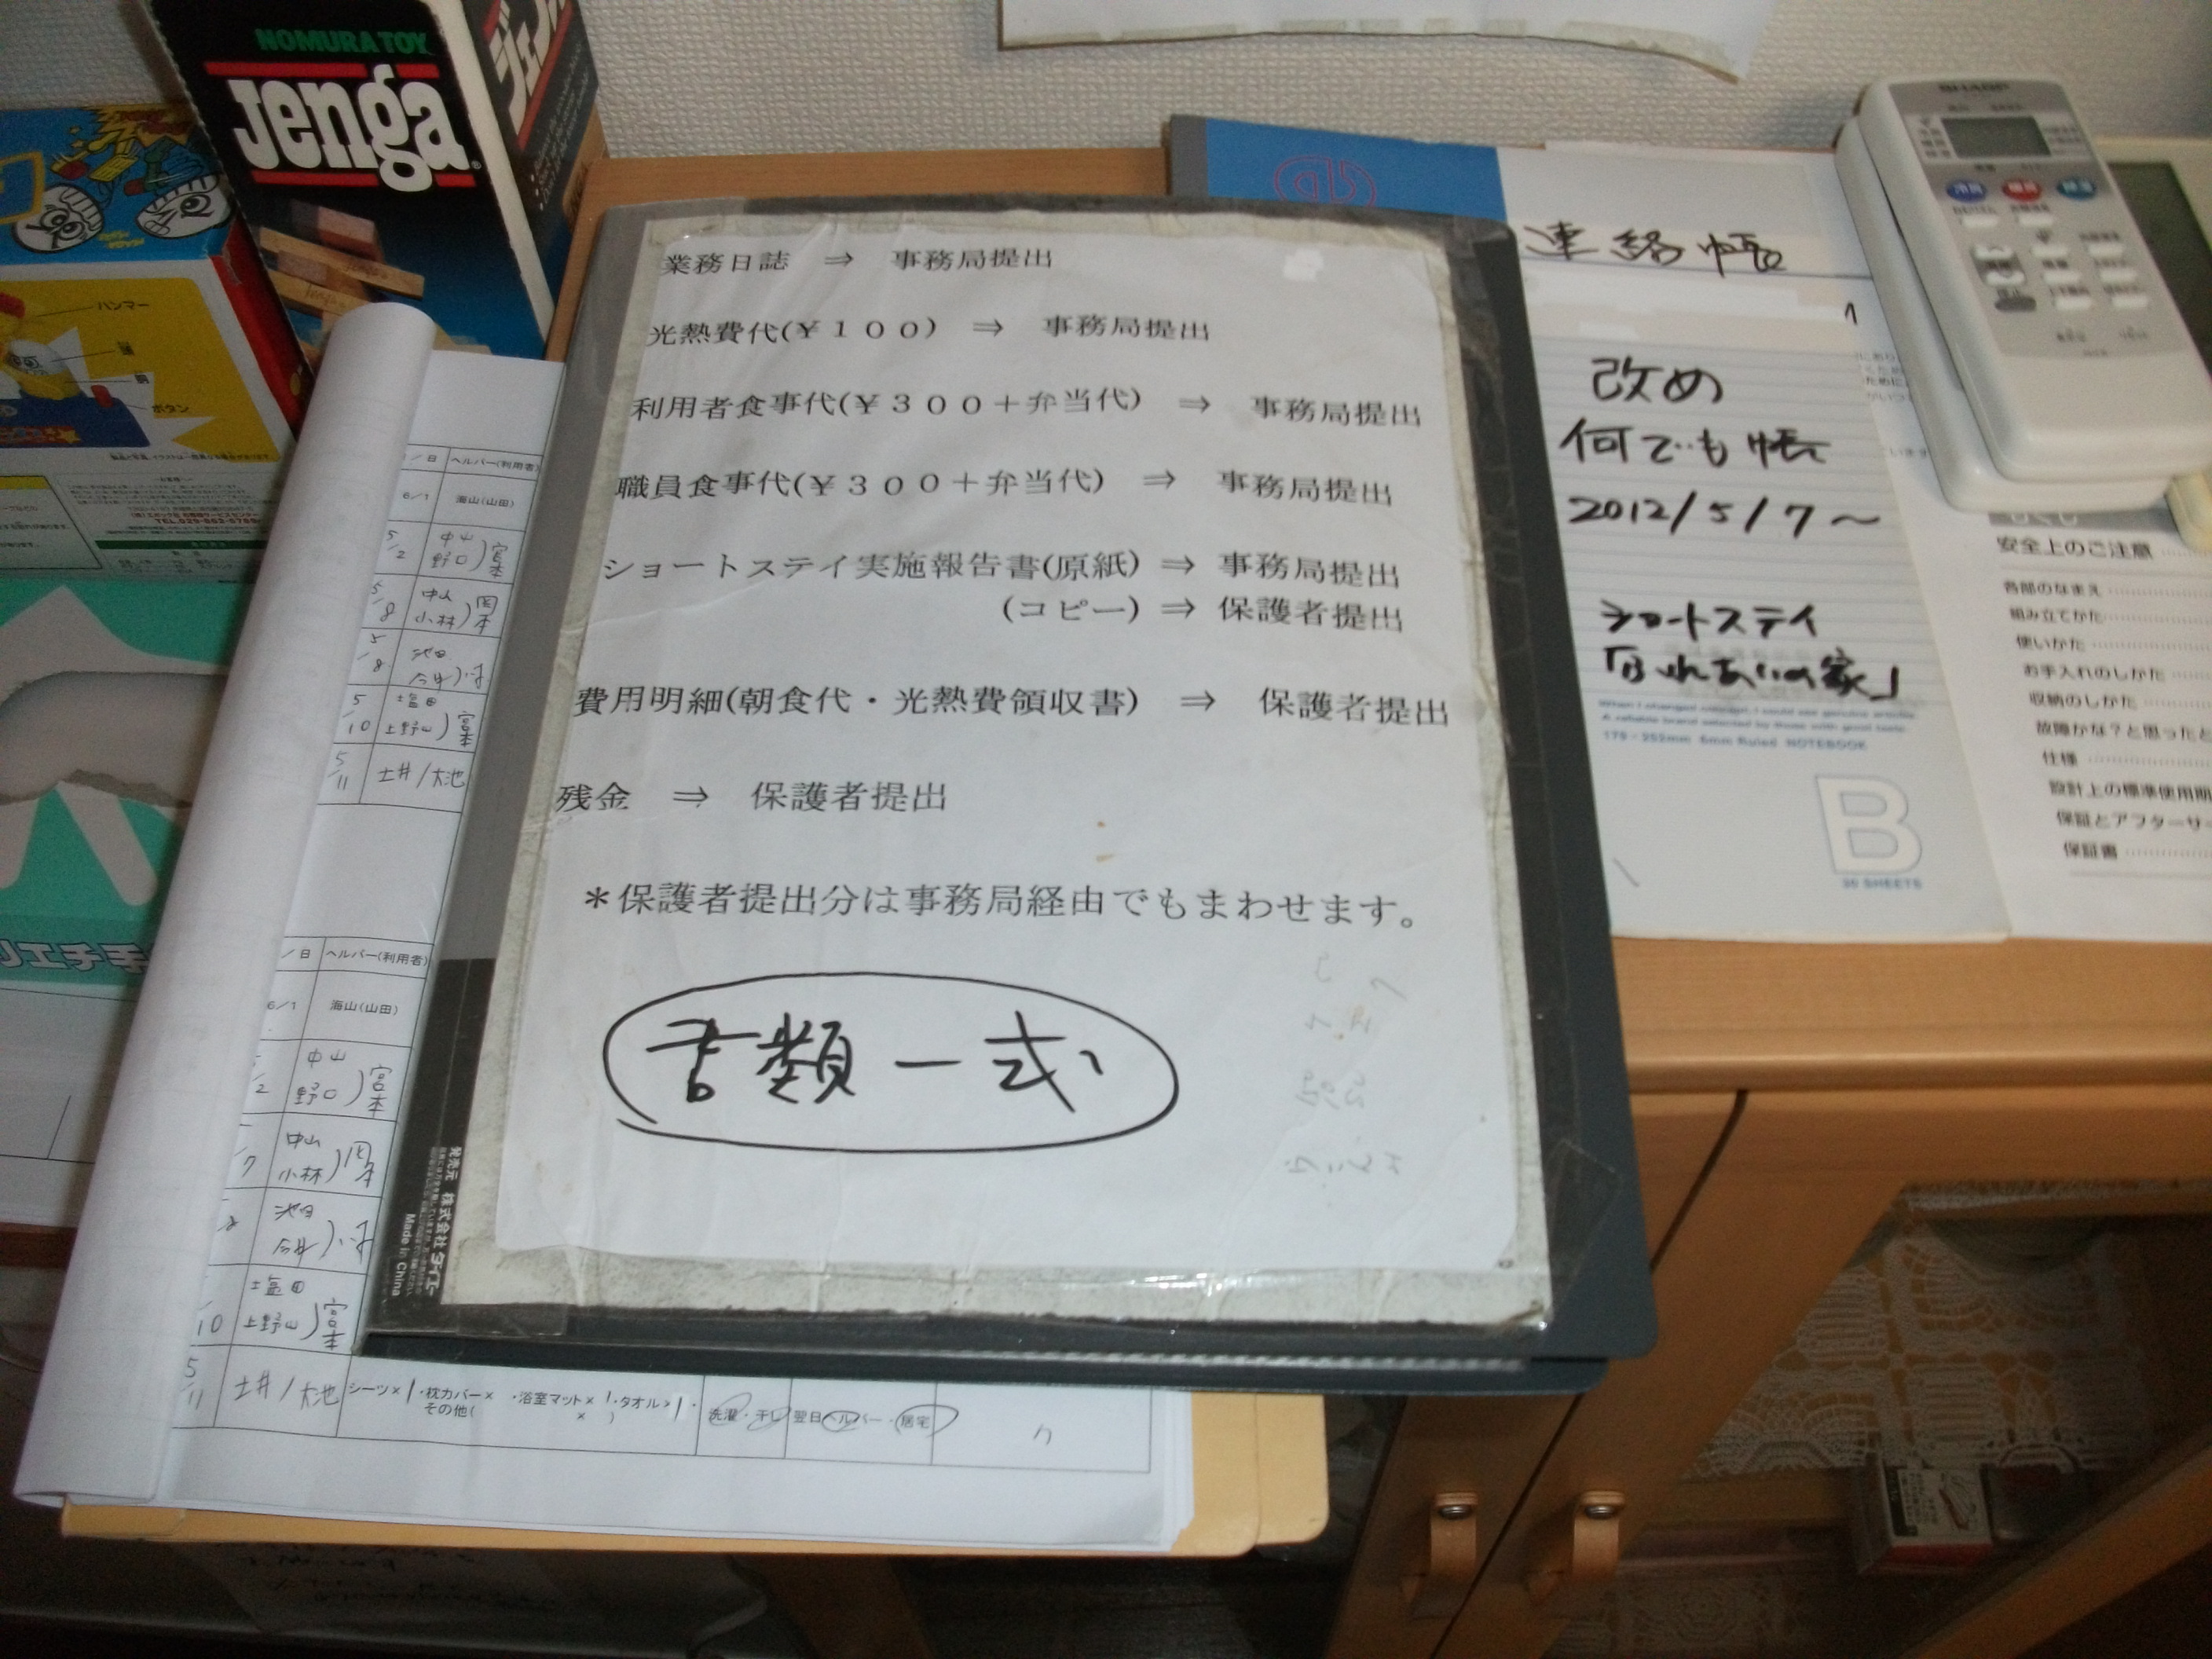 NOMURA TOY
Jenga
ハンマー
ボタン
業務日誌 ⇒ 事務局提出
光熱費代(￥１００) ⇒ 事務局提出
利用者食事代(￥３００＋弁当代) ⇒ 事務局提出
職員食事代(￥３００＋弁当代) ⇒ 事務局提出
ショートステイ実施報告書(原紙) ⇒ 事務局提出
(コピー) ⇒ 保護者提出
費用明細(朝食代・光熱費領収書) ⇒ 保護者提出
残金 ⇒ 保護者提出
＊保護者提出分は事務局経由でもまわせます。
書類一式
発売元 株式会社ダイエー
Made in China
連絡帳
改め
何でも帳
2012/5/7～
ショートステイ
「ふれあいの家」
179×252mm 6mm Ruled NOTEBOOK
B
30 SHEETS
SHARP
冷房
暖房
除湿
停止
安全上のご注意
各部のなまえ
組み立てかた
使いかた
お手入れのしかた
収納のしかた
故障かな？と思ったと
仕様
設計上の標準使用期
保証とアフターサー
保証書
／日 ヘルパー(利用者)
6/1 海山(山田)
5/2 中山 野口)宮本
5/8 中山 小林)岡本
5/8 池田
5/10 塩田 上野山)宮本
5/11 土井/大池
／日 ヘルパー(利用者)
6/1 海山(山田)
/2 中山 野口)宮本
/7 中山 小林)岡本
池田
10 塩田 上野山)宮本
5/11 土井/大池 シーツ×1・枕カバー× ・浴室マット×1・タオル×1・
その他( × ) 洗濯・干し 翌日ヘルパー・居宅
リエチ手